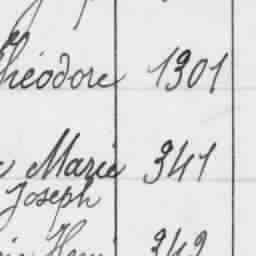 Théodore 1301
Marie 341
Joseph
Henri 342